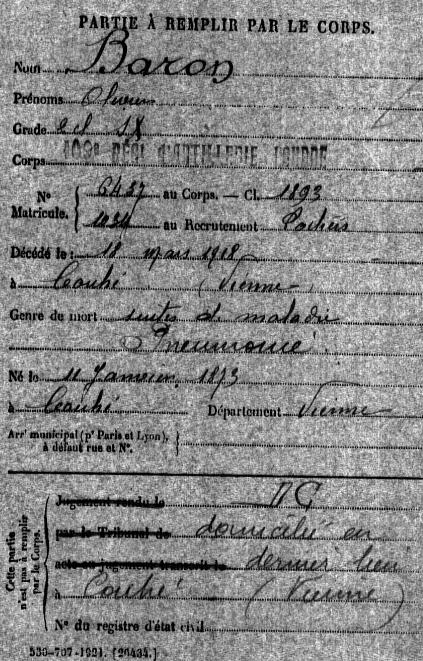 PARTIE À REMPLIR PAR LE CORPS.
Nom Baron
Prénoms
Grade 2e
Corps 103e RÉGt D'ARTILLERIE LOURDE
Nº Matricule. { 6437 au Corps. — Cl. 1893
1034 au Recrutement Poitiers
Décédé le : 18 mars 1918
à Couhé (Vienne)
Genre de mort suites de maladie
Pneumonie
Né le 11 Janvier 1873
à Couhé Département Vienne
Arrt municipal (pr Paris et Lyon), à défaut rue et Nº. }
Cette partie n'est pas à remplir par le Corps.
Jugement rendu le
par le Tribunal de domicilié en
acte ou jugement transcrit le dernier lieu
à Couhé (Vienne)
Nº du registre d'état civil
530-707-1921. [26434.]